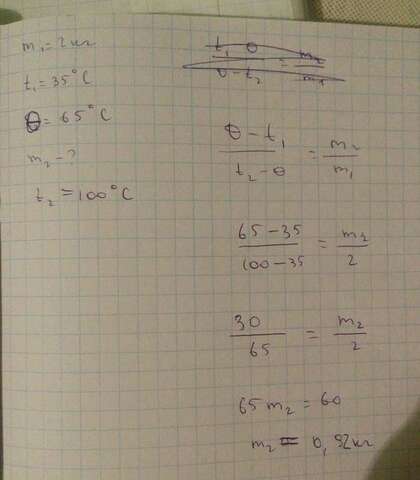 m₁ = 2 кг
t₁ = 35°C
θ = 65°C
m₂ - ?
t₂ = 100°C
θ - t₁ / t₂ - θ = m₂ / m₁
65 - 35 / 100 - 35 = m₂ / 2
30 / 65 = m₂ / 2
65 m₂ = 60
m₂ = 0,92кг